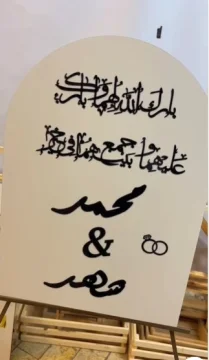 بارك الله لهما وبارك
عليهما وجمع بينهما في خير
محمد
&
شهد